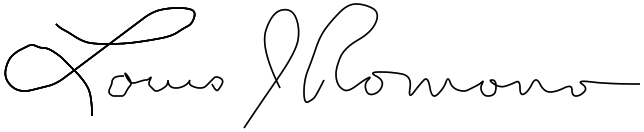 Louis J Romano